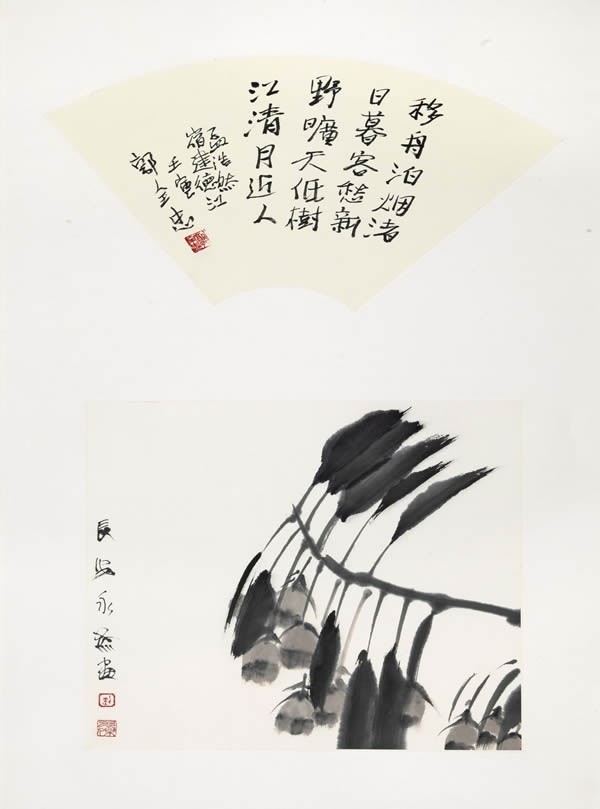 移舟泊烟渚
日暮客愁新
野曠天低樹
江清月近人
孟浩然
宿建德江
壬寅
郭全忠
長安永畫